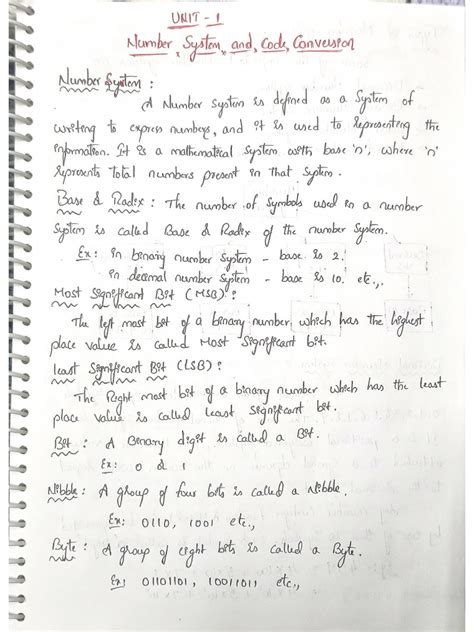 UNIT - 1
Number System and Code Conversion
Number System :
A Number system is defined as a System of
writing to express numbers, and it is used to representing the
information. It is a mathematical system with base 'n', where 'n'
represents total numbers present in that system.
Base & Radix : The number of Symbols used in a number
System is called Base & Radix of the number System.
Ex: in binary number system - base is 2.
in decimal number system - base is 10. etc.,
Most Significant Bit (MSB) :
The left most bit of a binary number which has the highest
place value is called Most Significant bit.
least Significant Bit (LSB) :
The Right most bit of a binary number which has the least
place value is called least Significant bit.
Bit : A Binary digit is called a Bit.
Ex: 0 & 1
Nibble : A group of four bits is called a Nibble.
Ex: 0110, 1001 etc.,
Byte : A group of eight bits is called a Byte.
Ex: 01101101, 10011011, etc.,